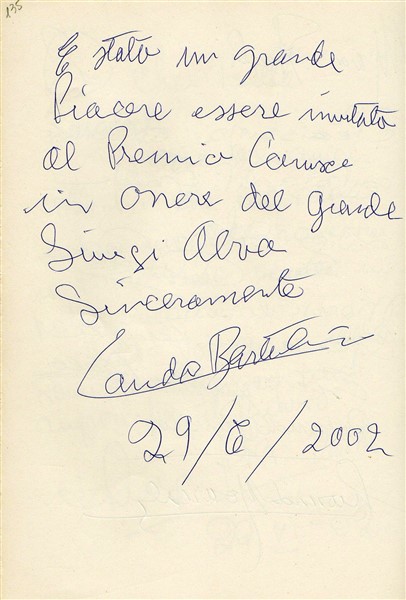 135
È stato un grande
Piacere essere invitato
al Premio Caruso
in onore del grande
Luigi Alva
Sinceramente
Lando Bartolini
29/6/2002